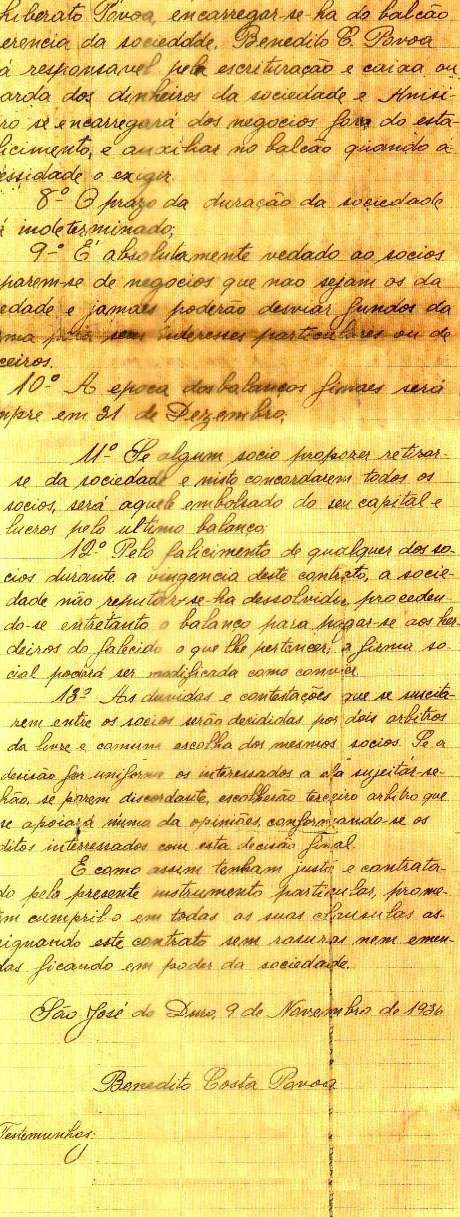 hiliberato Póvoa, encarregar-se-ha do balcão
erencia da sociedade. Benedito C. Povoa
á responsavel pela escrituração e caixa ou
arda dos dinheiros da sociedade e Anisi-
ro se encarregará dos negocios fora do esta-
licimento, e auxiliar no balcão quando a
essidade o exigir.
8º O prazo da duração da sociedade
á indeterminado;
9º É absolutamente vedado ao socios
parem-se de negocios que nao sejam os da
edade e jamaes poderão desviar fundos da
ma para seus interesses particulares ou de
ceiros.
10º A epoca dos balancos finaes será
mpre em 31 de Dezembro;
11º Se algum socio propozer retirar-
se da sociedade e nisto concordarem todos os
socios, será aquele embolsado do seu capital e
lucros pelo ultimo balanço;
12º Pelo falicimento de qualquer dos so-
cios durante a vingencia deste contrato, a socie-
dade não reputar-se-ha dessolvida, proceden-
do-se entretanto o balanco para pagar-se aos her-
deiros do falecido o que lhe pertencer; a firma so-
cial poderá ser modificada como convier.
13º As duvidas e contestações que se suscita-
rem entre os socios serão decididas por dois arbitros
da livre e comum escolha dos mesmos socios. Se a
decisão for uniforme os interessados a ela sujeitar-se-
hão, se porem discordante, escolherão terceiro arbitro que
se apoiará numa da opiniões, conformando-se os
ditos interressados com esta decisão final.
E como assim tenham justo e contrata-
do pelo presente instrumento particular, prome-
em cumpril-o em todas as suas clausulas as-
signando este contrato sem rasuras nem emen-
das ficando em poder da sociedade.
São José do Duro, 9 de Novembro de 1936
Benedito Costa Povoa
Testemunhas: